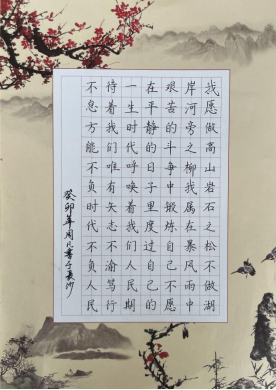 我愿做高山岩石之松不做湖
岸河旁之柳我属在暴风雨中
艰苦的斗争中锻炼自己不愿
在平静的日子里度过自己的
一生时代呼唤着我们人民期
待着我们唯有矢志不渝笃行
不息方能不负时代不负人民
癸卯年周凡書于長沙